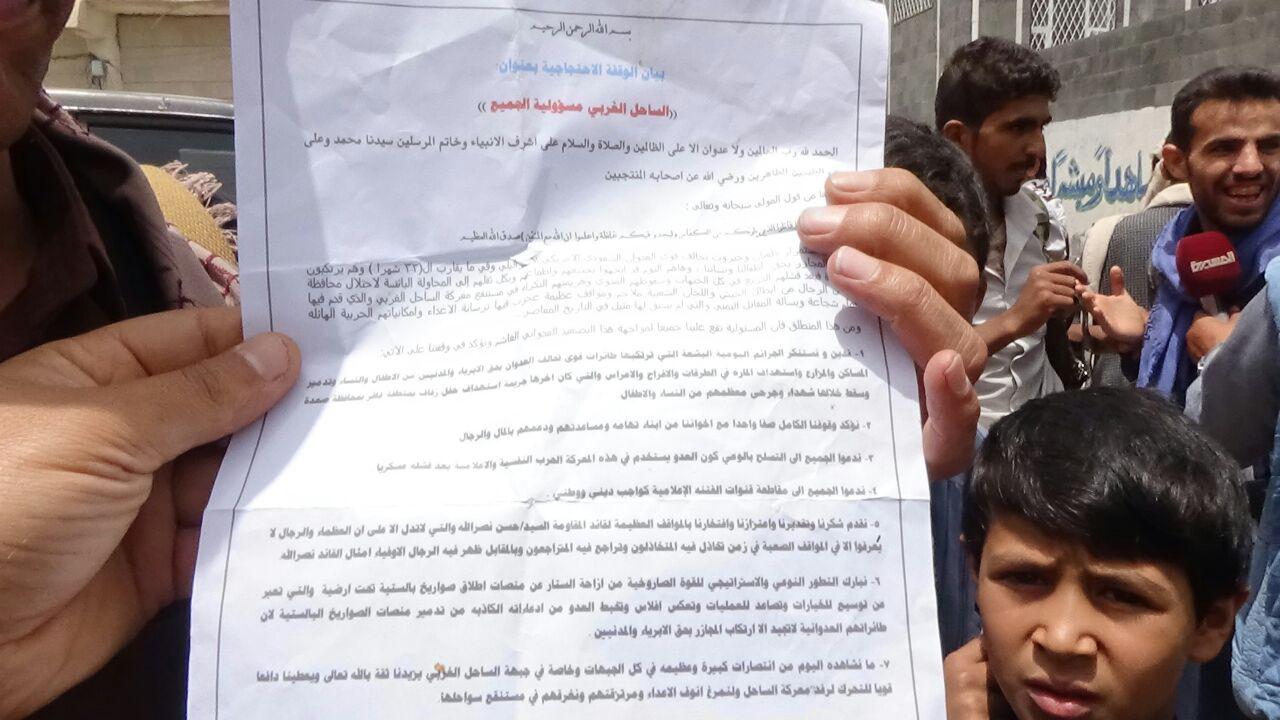 بسم الله الرحمن الرحيم
بيان الوقفة الاحتجاجية بعنوان
((الساحل الغربي مسؤولية الجميع ))
الحمد لله رب العالمين ولا عدوان الا على الظالمين والصلاة والسلام على اشرف الانبياء وخاتم المرسلين سيدنا محمد وعلى
الطيبين الطاهرين ورضي الله عن اصحابه المنتجبين
من قول المولى سبحانه وتعالى :
من الكفار وليجدوا فيكم غلظة واعلموا ان الله مع المتقين )صدق الله العظيم
العدوان السعودي الامريكي
وفي ما يقارب ال(٣٢ شهرا ) وهم يرتكبون
المجازر بحق اطفالنا ونسائنا ، وهاهم اليوم قد
بكل ثقلهم إلى المحاولة اليائسة لاحتلال محافظة
الرجال من ابطال الجيش واللجان الشعبية ملاحم ومواقف عظيمة
في مستنقع معركة الساحل الغربي والذي قدم فيها
شجاعة وبسالة المقاتل اليمني والتي لم يسبق لها مثيل في التاريخ المعاصر .
ترسانة الاعداء وامكانياتهم الحربية الهائلة
ومن هذا المنطلق فان المسئولية تقع علينا جميعا لمواجهة هذا التصعيد العدواني الغاشم ونؤكد في وقفتنا على الاتي:
١- ندين و نستنكر الجرائم اليومية البشعة التي ترتكبها طائرات قوى تحالف العدوان بحق الابرياء والمدنيين من الاطفال والنساء وتدمير
المساكن والمزارع واستهداف الماره في الطرقات والافراح والاعراس والتي كان اخرها جريمة استهداف حفل زفاف بمنطقة غافر بمحافظة صعدة
وسقط خلالها شهداء وجرحى معظمهم من النساء والاطفال
٢- نؤكد وقوفنا الكامل صفا واحدا مع اخواننا من ابناء تهامه ومساعدتهم ودعمهم بالمال والرجال
٣- ندعوا الجميع الى التسلح بالوعي كون العدو يستخدم في هذه المعركة الحرب النفسية والاعلامية بعد فشله عسكريا
٤- ندعوا الجميع الى مقاطعة قنوات الفتنه الإعلامية كواجب ديني ووطني .
٥- نقدم شكرنا وتقديرنا واعتزازنا وافتخارنا بالمواقف العظيمة لقائد المقاومة السيد/حسن نصرالله والتي لاتدل الا على ان العظماء والرجال لا
يعرفوا الا في المواقف الصعبة في زمن تخاذل فيه المتخاذلون وتراجع فيه المتراجعون وبالمقابل ظهر فيه الرجال الاوفياء امثال القائد نصرالله.
٦- نبارك التطور النوعي والاستراتيجي للقوة الصاروخية من ازاحة الستار عن منصات اطلاق صواريخ بالستية تحت ارضية والتي تعبر
عن توسيع للخيارات وتصاعد للعمليات وتعكس افلاس وتخبط العدو من ادعاراته الكاذبه من تدمير منصات الصواريخ البالستية لان
طائراتهم العدوانية لاتجيد الا ارتكاب المجازر بحق الابرياء والمدنيين .
٧- ما نشاهده اليوم من انتصارات كبيرة وعظيمه في كل الجبهات وخاصة في جبهة الساحل الغربي يزيدنا ثقة بالله تعالى ويعطينا دافعا
قويا للتحرك لرفد معركة الساحل ولنمرغ انوف الاعداء ومرتزقتهم ونغرقهم في مستنقع سواحلها.
المسيرة